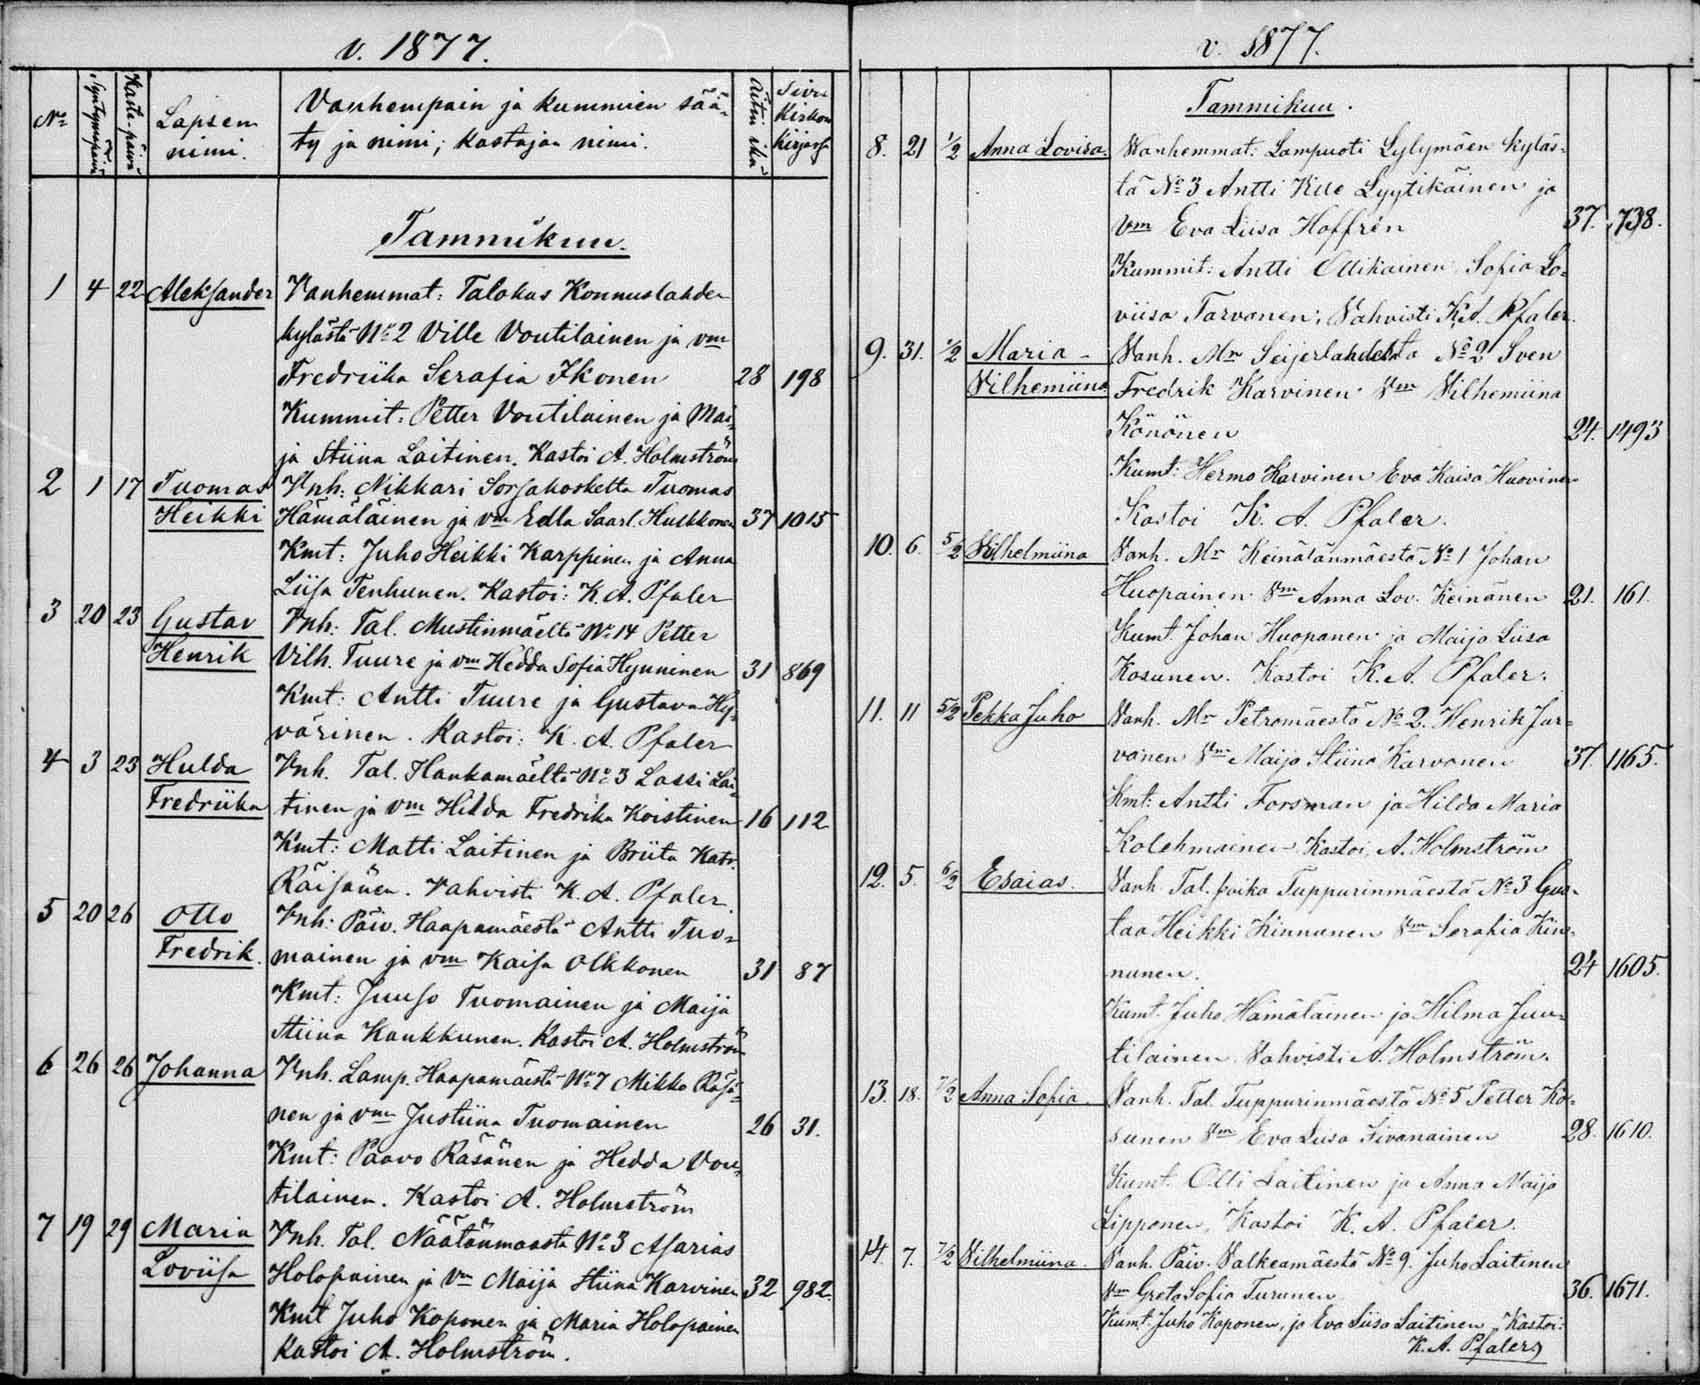 v. 1877.
No
Syntymäpäivä
Kaste-päivä
Lapsen
nimi.
Vanhempain ja kummien sää-
ty ja nimi; kastajan nimi.
Äitin ikä
Sivu
Kirkon
kirjassa
Tammikuu.
1 4 22 Aleksander Vanhemmat: Talokas Konnuslahden
kylästä No 2 Ville Voutilainen ja vm
Fredriika Serafia Ikonen 28 198
Kummit: Petter Voutilainen ja Mai-
ja Stiina Laitinen. Kastoi A. Holmström
2 1 17 Tuomas Vnh: Nikkari Sorsakoskelta Tuomas
Heikki Hämäläinen ja vm Edla Saarl. Hulkkonen 37 1015
Kmt: Juho Heikki Karppinen ja Anna
Liisa Tenhunen. Kastoi: K. A. Pfaler
3 20 23 Gustav Vnh: Tal. Mustinmäeltä No 14 Petter
Henrik Vilh. Tuure ja vm Hedda Sofia Hynninen 31 869
Kmt: Antti Tuure ja Gustava Hy-
värinen. Kastoi: K. A. Pfaler
4 3 23 Hulda Vnh. Tal. Hankamäeltä No 3 Lassi Lai-
Fredriika tinen ja vm Hilda Fredrika Koistinen 16 112
Kmt: Matti Laitinen ja Briita Katr.
Räisänen. Vahvisti K. A. Pfaler.
5 20 26 Otto Vnh. Päiv. Haapamäestä Antti Tuo-
Fredrik. mainen ja vm Kaisa Olkkonen 31 87
Kmt: Juuso Tuomainen ja Maija
Stiina Kaukkunen. Kastoi A. Holmström
6 26 26 Johanna Vnh. Lamp. Haapamäestä No 7 Mikko Räsä-
nen ja vm Justiina Tuomainen 26 31.
Kmt: Paavo Räsänen ja Hedda Vou-
tilainen. Kastoi A. Holmström
7 19 29 Maria Vnh. Tal. Näätänmaasta No 3 Asarias
Loviisa Holopainen ja Vm Maija Stiina Karvinen 32 982.
Kmt Juho Koponen ja Maria Holopainen
Kastoi A. Holmström.
v. 1877.
Tammikuu.
8. 21 1/2 Anna Lovisa. Vanhemmat: Lampuoti Lylymäen kyläs-
tä No 3 Antti Kalle Lyytikäinen ja
Vm Eva Liisa Hoffrén 37. 738.
Kummit: Antti Ollikainen Sofia Lo-
viisa Tarvanen, Vahvisti K. A. Pfaler.
9. 31. 1/2 Maria - Vanh. Mr Seijerlahdelta No 2 Sven
Vilhemiina Fredrik Karvinen Vm Vilhemiina
Könönen 24. 1493
Kumt: Hermo Karvinen Eva Kaisa Huovinen
Kastoi K. A. Pfaler.
10. 6. 5/2 Vilhelmiina Vanh. Mr Keinälänmäestä No 1 Johan
Huopainen Vm Anna Lov. Keinänen 21. 161.
Kumt. Johan Huopanen ja Maija Liisa
Kosunen. Kastoi K. A. Pfaler.
11. 11 5/2 Pekka Juho Vanh. Mr Petromäestä No 2. Henrik Jar-
vanen Vm Maija Stiina Karvonen 37. 1165.
Kmt: Antti Forsman ja Hilda Maria
Kolehmainen - Kastoi, A. Holmström
12. 5. 6/2 Esaias. Vanh. Tal. poika Tuppurinmäestä No 3 Gus-
taa Heikki Kinnunen Vm Serafia Kin-
nunen. 24 1605.
Kumt. Juho Hämäläinen ja Hilma Juu-
tilainen. Vahvisti A. Holmström.
13. 18. 7/2 Anna Sofia. Vanh. Tal. Tuppurinmäestä No 5 Petter Ko-
sunen Vm Eva Liisa Iivanainen 28. 1610.
Kumt. Olli Laitinen ja Anna Maija
Lipponen. Kastoi K. A. Pfaler.
14. 7. 7/2 Vilhelmiina. Vanh. Päiv. Valkeamäestä No 9. Juho Laitinen
Vm Greta Sofia Turunen 36. 1671.
Kumt: Juho Koponen, ja Eva Liisa Laitinen, Kastoi:
K. A. Pfaler.